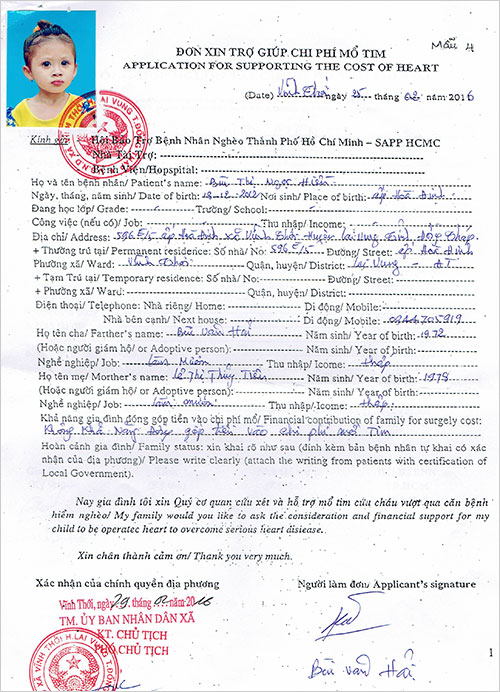 Mẫu 4
ĐƠN XIN TRỢ GIÚP CHI PHÍ MỔ TIM
APPLICATION FOR SUPPORTING THE COST OF HEART
(Date) Vĩnh Thới, ngày 25 tháng 02 năm 2016
Kính gửi: Hội Bảo Trợ Bệnh Nhân Nghèo Thành Phố Hồ Chí Minh – SAPP HCMC
Nhà Tài Trợ:
Bệnh Viện/Hopspital:
Họ và tên bệnh nhân/ Patient's name: Bùi Thị Ngọc Hiền
Ngày, tháng, năm sinh/ Date of birth: 18.12.2012 Nơi sinh/ Place of birth: ấp Hoà Định
Đang học lớp/ Grade: - Trường/ School: -
Công việc (nếu có)/ Job: Thu nhập/ Income:
Địa chỉ/ Address: 596E/5 ấp Hoà Định xã Vĩnh Thới Huyện Lai Vung Tỉnh Đồng Tháp
+ Thường trú tại/ Permanent residence: Số nhà/ No: 596E/5 Đường/ Street: ấp Hoà Định
Phường xã/ Ward: Vĩnh Thới Quận, huyện/ District: Lai Vung - ĐT
+ Tạm Trú tại/ Temporary residence: Số nhà/ No: Đường/ Street:
+ Phường xã/ Ward: Quận, huyện/ District:
Điện thoại/ Telephone: Nhà riêng/ Home: Di động/ Mobile:
Nhà bên cạnh/ Next house: Di động/ Mobile:
Họ tên cha/ Farther's name: Bùi Văn Hai Năm sinh/ Year of birth: 1972
(Hoặc người giám hộ/ or Adoptive person): Năm sinh/ Year of birth:
Nghề nghiệp/ Job: Làm Mướn Thu nhập/ Icome: thấp
Họ tên mẹ/ Morther's name: Lê Thị Thủy Tiên Năm sinh/ Year of birth: 1978
(Hoặc người giám hộ/ or Adoptive person): Năm sinh/ Year of birth:
Nghề nghiệp/ Job: làm mướn Thu nhập/ Icome: thấp
Khả năng gia đình đóng góp tiền vào chi phí mổ/ Financial contribution of family for surgely cost:
Không Khả Năng đóng góp tiền vào chi phí mổ Tim
Hoàn cảnh gia đình/ Family status: xin khai rõ như sau (đính kèm bản bệnh nhân tự khai có xác
nhận của địa phương)/ Please write clearly (attach the writing from patients with certification of
Local Government).
Nay gia đình tôi xin Quý cơ quan cứu xét và hỗ trợ mổ tim cứu cháu vượt qua căn bệnh
hiểm nghèo/ My family would you like to ask the consideration and financial support for my
child to be operatec heart to overcome serious heart disiease.
Xin chân thành cảm ơn/ Thank you very much.
Xác nhận của chính quyền địa phương
Người làm đơn/ Applicant's signature
Vĩnh Thới, ngày 29 tháng 02 năm 2016
TM. ỦY BAN NHÂN DÂN XÃ
KT. CHỦ TỊCH
PHÓ CHỦ TỊCH
Bùi Văn Hai
1